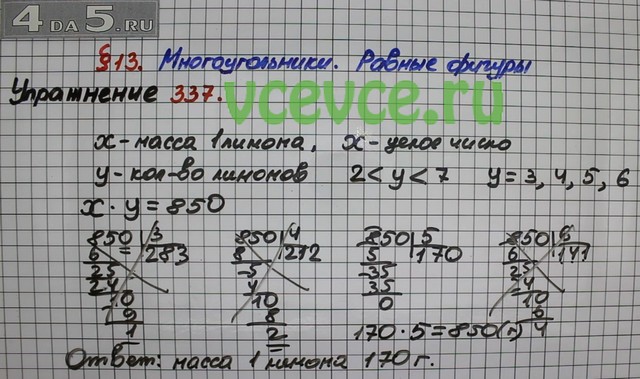 4DA5.RU
§13. Многоугольники. Равные фигуры
Упражнение 337.
vcevce.ru
x - масса 1 лимона, x - целое число
y - кол-во лимонов 2 < y < 7 y = 3, 4, 5, 6
x · y = 850
850 | 3 850 | 4 850 | 5 850 | 6
6 283 8 212 5 170 6 141
25 5 35 25
24 4 35 24
10 10 0 10
9 8 6
1 2 170 · 5 = 850 (г) 4
Ответ: масса 1 лимона 170 г.